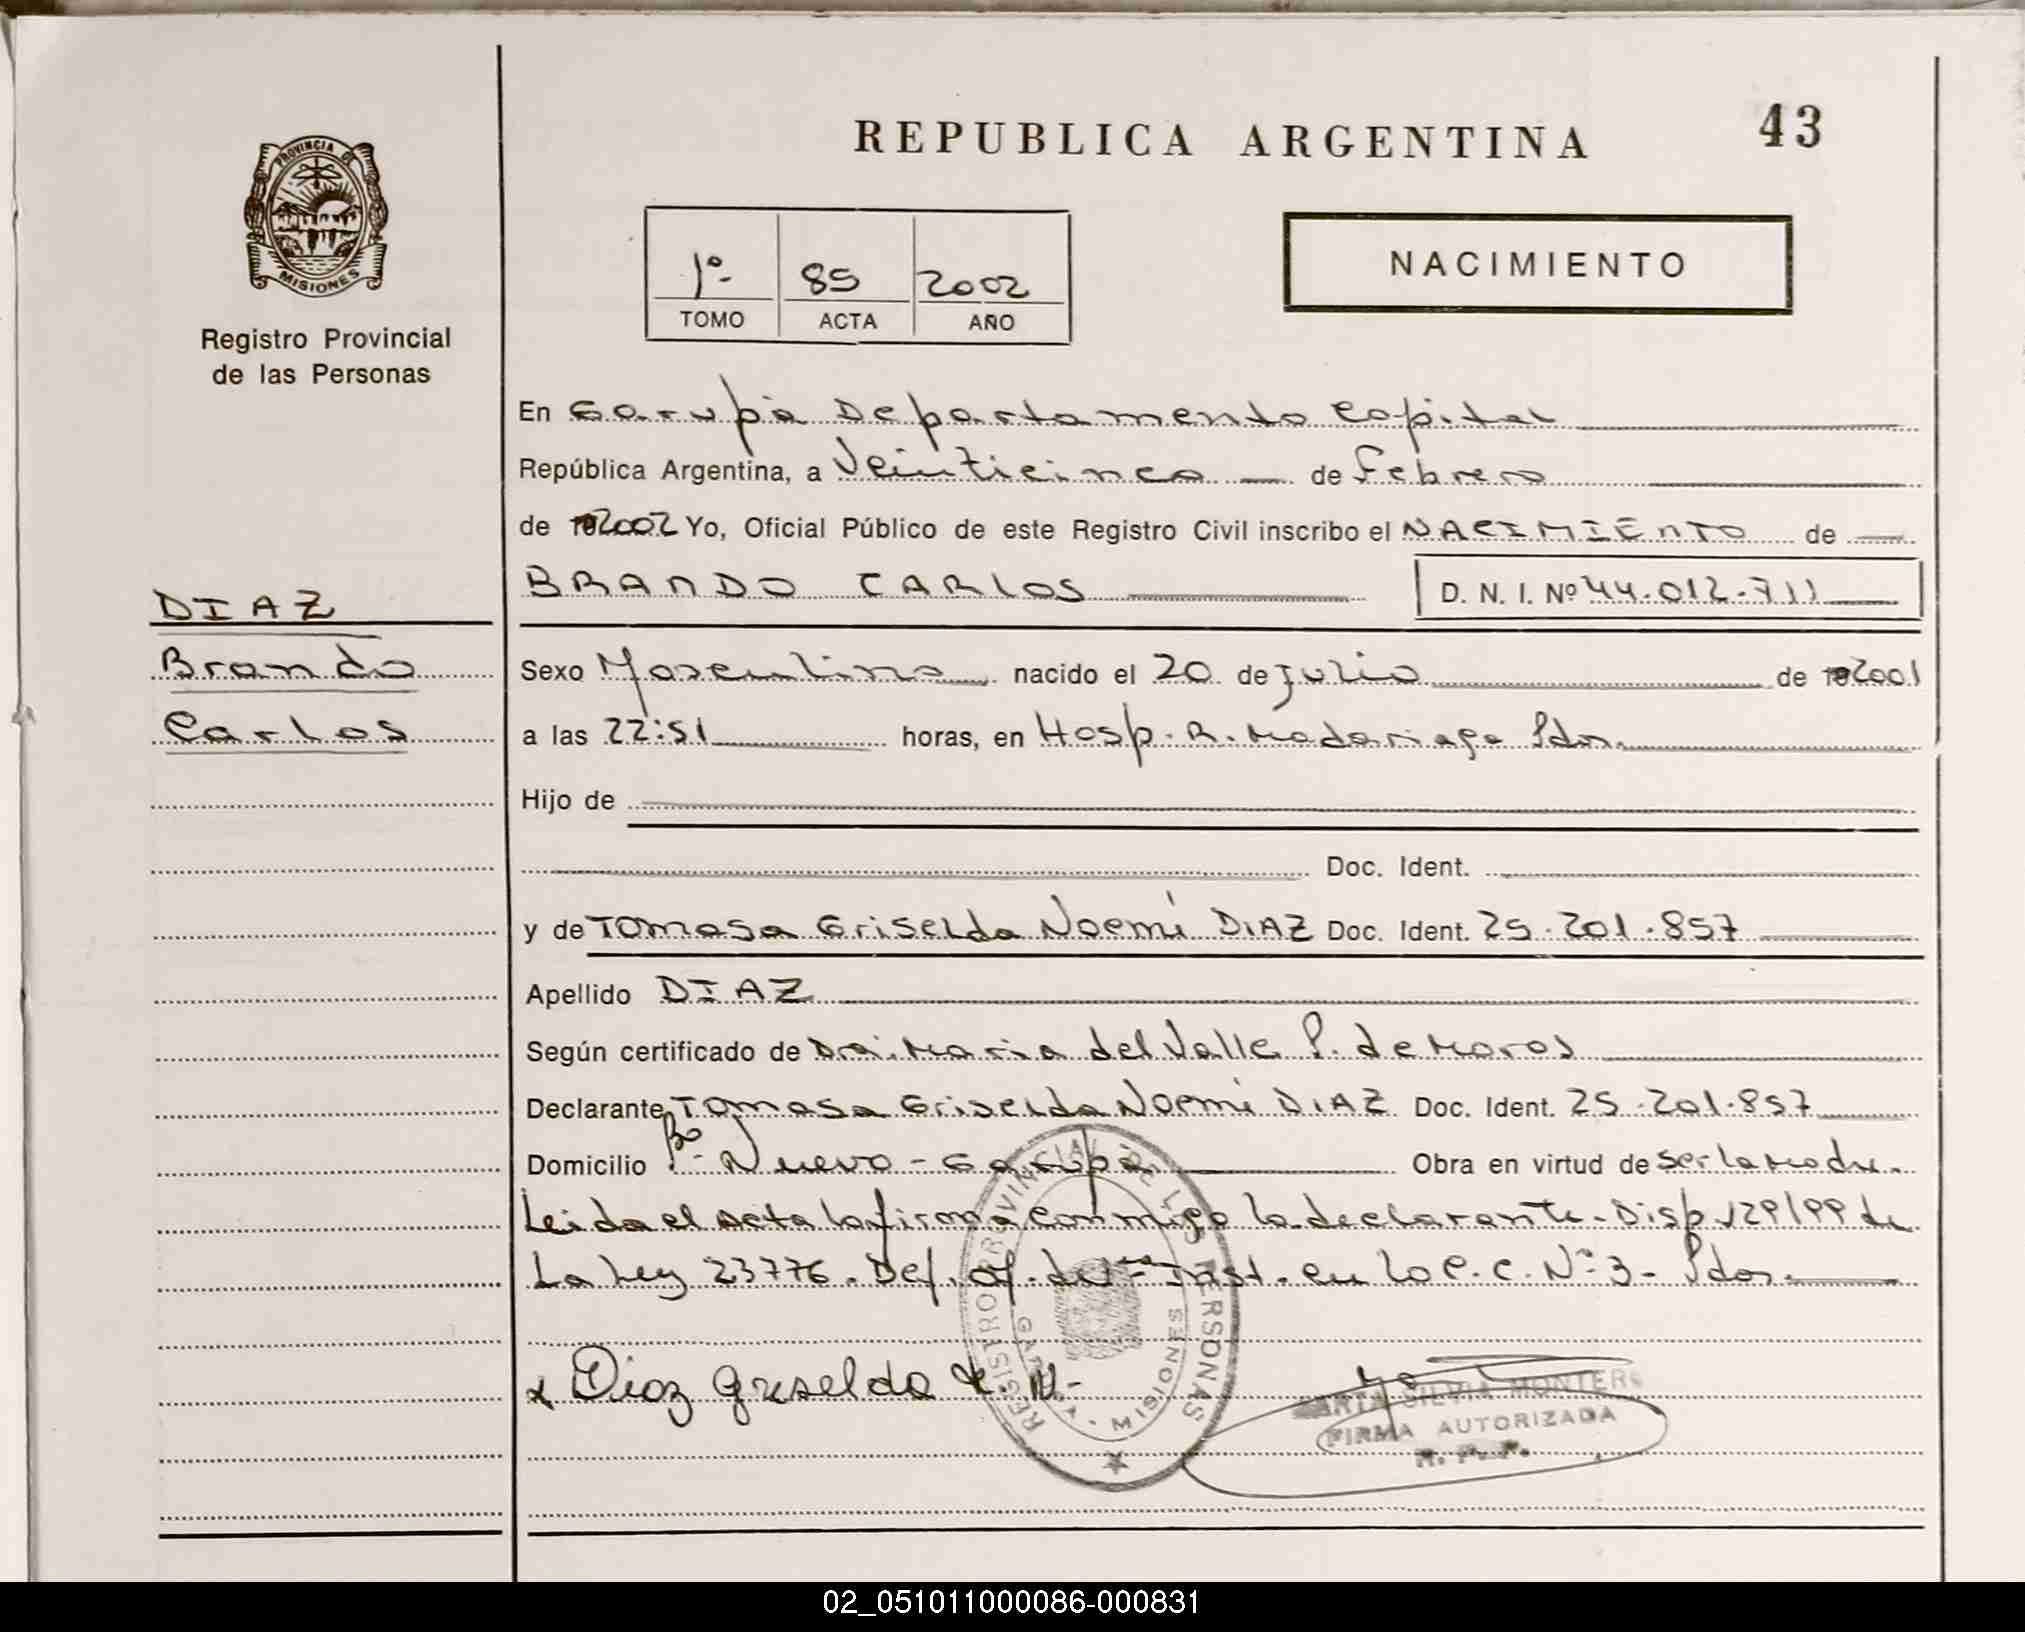 REPUBLICA ARGENTINA
43
PROVINCIA DE
MISIONES
Registro Provincial
de las Personas
1º 85 2002
TOMO ACTA AÑO
NACIMIENTO
En Garupá Departamento Capital
República Argentina, a Veinticinco de Febrero
de 2002 Yo, Oficial Público de este Registro Civil inscribo el NACIMIENTO de
BRANDO CARLOS D. N. I. Nº 44.012.711
DIAZ
Brando
Carlos
Sexo Masculino nacido el 20 de Julio de 2001
a las 22:51 horas, en Hosp. R. Madariaga Pdas.
Hijo de
Doc. Ident.
y de Tomasa Griselda Noemí DIAZ Doc. Ident. 25.201.857
Apellido DIAZ
Según certificado de Dra. Maria del Valle P. de Moros
Declarante Tomasa Griselda Noemí DIAZ Doc. Ident. 25.201.857
Domicilio Bº Nuevo - Garupá Obra en virtud de ser la Madre.
Leida el acta la firma conmigo la declarante. Disp. 129/99 de
La Ley 23776. Def. of. de 1ª Inst. en lo C.C. Nº 3 - Pdas.
REGISTRO PROVINCIAL DE LAS PERSONAS
GARUPA - MISIONES
x Diaz Griselda N-
SILVIA MONTERO
FIRMA AUTORIZADA
02_051011000086-000831